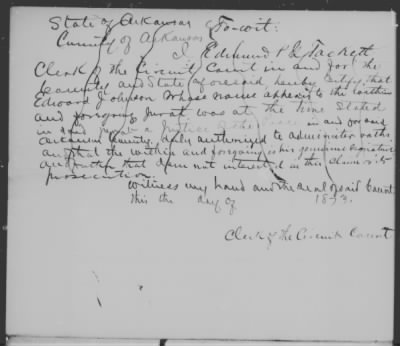 State of Arkansas
County of Arkansas } To-wit:
I Edmund P G Tackett
Clerk of the Circuit Court in and for the
County and State aforesaid hereby Certify that
Edward Johnson whose name appears to the within
and foregoing jurat was at the time Stated
in said jurat a Justice of the Peace in and for said
Arkansas County, duly authorized to administer oaths
and that the within and foregoing is his genuine signature
and further that I am not interested in this claim or its
prosecution.
Witness my hand and the seal of said Court
this the day of 18 3.
Clerk of the Circuit Court